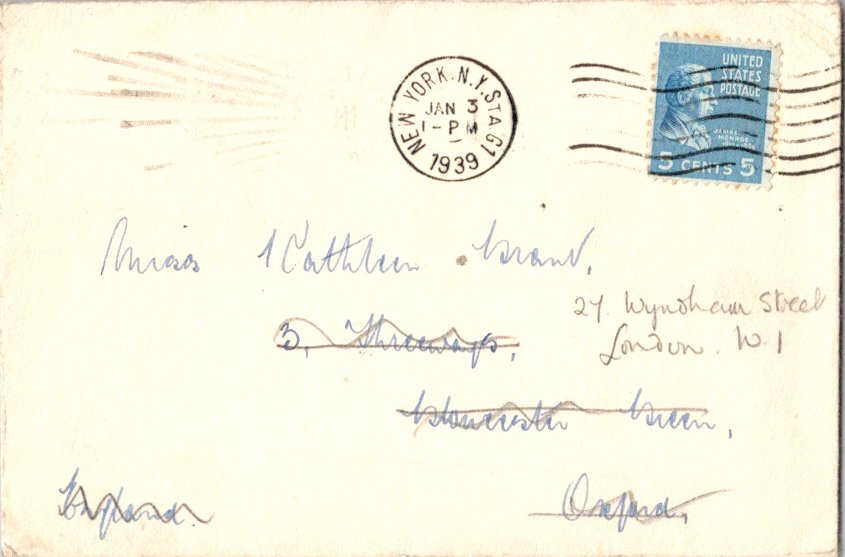 NEW YORK. N.Y. STA. 61
JAN 3
1-PM
1939
UNITED
STATES
POSTAGE
JAMES
MONROE
5 CENTS 5
Miss Kathleen
27. Wyndham Street
London. W.1
3, Threeways,
Gloucester Green,
Oxford,
England.